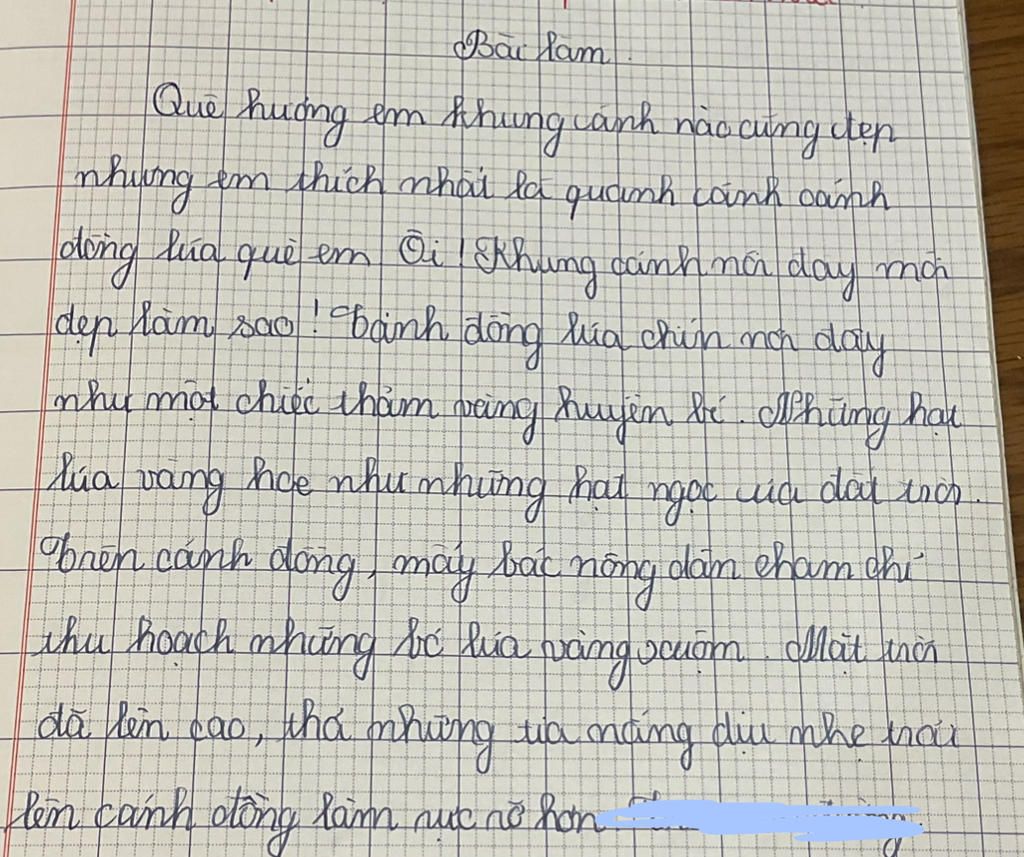 Bài làm.
Quê hương em khung cảnh nào cũng đẹp
nhưng em thích nhất là quanh cảnh cánh
đồng lúa quê em. Ôi! Khung cảnh nơi đây mới
đẹp làm sao! Cánh đồng lúa chín nơi đây
như một chiếc thảm vàng huyền bí. Những hạt
lúa vàng hoe như những hạt ngọc của đất trời.
Trên cánh đồng, mấy bác nông dân chăm chỉ
thu hoạch những bó lúa vàng xuộm. Mặt trời
đã lên cao, thả những tia nắng dịu nhẹ trải
lên cánh đồng làm rực rỡ hơn